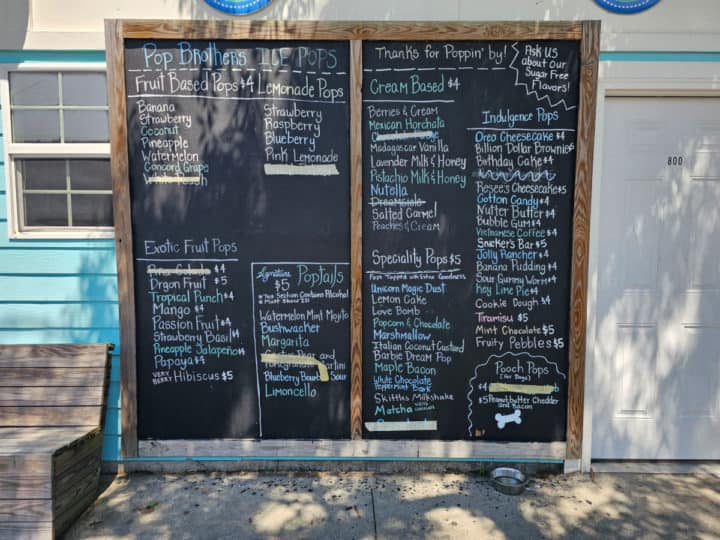 Pop Brothers ICE POPS
Fruit Based Pops $4
Banana
Strawberry
Coconut
Pineapple
Watermelon
Concord Grape
Lemonade Pops
Strawberry
Raspberry
Blueberry
Pink Lemonade
Exotic Fruit Pops
Pina Colada $4
Drgon Fruit $5
Tropical Punch $4
Mango $4
Passion Fruit $4
Strawberry Basil $4
Pineapple Jalapeño $4
Papaya $4
VERY BERRY Hibiscus $5
Signature Poptails
$5
*This Section Contains Alcohol
* Must Show ID
Watermelon Mint Mojito
Bushwacker
Margarita
Blueberry Bourbon Sour
Limoncello
Thanks for Poppin' by!
Ask Us
about Our
Sugar Free
Flavors!
Cream Based $4
Berries & Cream
Mexican Horchata
Madagascar Vanilla
Lavender Milk & Honey
Pistachio Milk & Honey
Nutella
Dreamsicle
Salted Carmel
Peaches & Cream
Speciality Pops $5
Pops Topped with Extra Goodness
Unicorn Magic Dust
Lemon Cake
Love Bomb
Popcorn & Chocolate
Marshmallow
Italian Coconut Custard
Barbie Dream Pop
Maple Bacon
White Chocolate
Peppermint Bark
Skittles Milkshake
Matcha
Indulgence Pops
Oreo Cheesecake $4
Billion Dollar Brownie $5
Birthday Cake $4
Resee's Cheesecake $5
Cotton Candy $4
Nutter Butter $4
Bubble Gum $4
Vietnamese Coffee $4
Snicker's Bar $5
Jolly Rancher $4
Banana Pudding $4
Sour Gummy Worm $4
Key Lime Pie $4
Cookie Dough $4
Tiramisu $5
Mint Chocolate $5
Fruity Pebbles $5
Pooch Pops
(for Dogs)
$4
$5 Peanut butter Cheddar
and Bacon
800